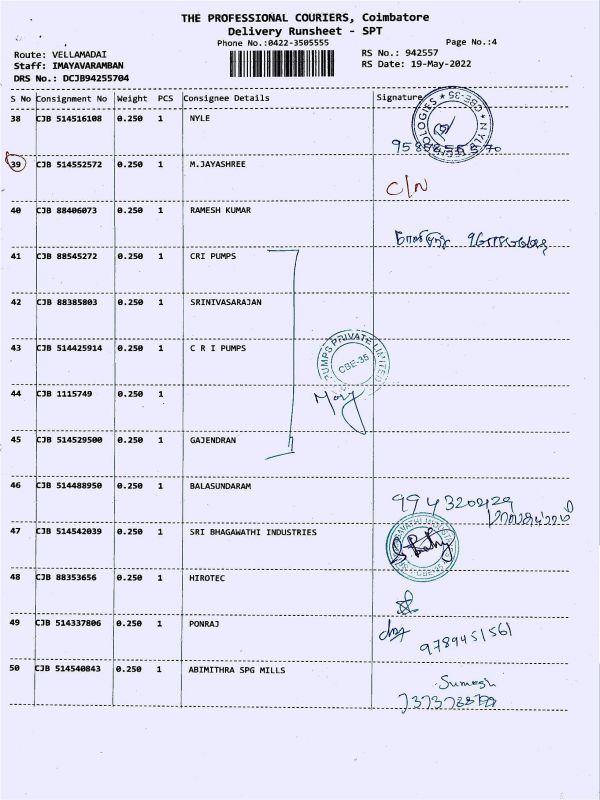 THE PROFESSIONAL COURIERS, Coimbatore
Delivery Runsheet - SPT
Phone No.:0422-3505555
Page No.:4
Route: VELLAMADAI
RS No.: 942557
Staff: IMAYAVARAMBAN
RS Date: 19-May-2022
DRS No.: DCJB94255704
S No Consignment No Weight PCS Consignee Details Signature
38 CJB 514516108 0.250 1 NYLE
39 CJB 514552572 0.250 1 M.JAYASHREE
C/N
40 CJB 88406073 0.250 1 RAMESH KUMAR
41 CJB 88545272 0.250 1 CRI PUMPS
42 CJB 88385803 0.250 1 SRINIVASARAJAN
43 CJB 514425914 0.250 1 C R I PUMPS
PUMPS PRIVATE LIMITED
CBE-35
44 CJB 1115749 0.250 1
45 CJB 514529500 0.250 1 GAJENDRAN
46 CJB 514488950 0.250 1 BALASUNDARAM
47 CJB 514542039 0.250 1 SRI BHAGAWATHI INDUSTRIES
48 CJB 88353656 0.250 1 HIROTEC
49 CJB 514337806 0.250 1 PONRAJ
9789451561
50 CJB 514540843 0.250 1 ABIMITHRA SPG MILLS